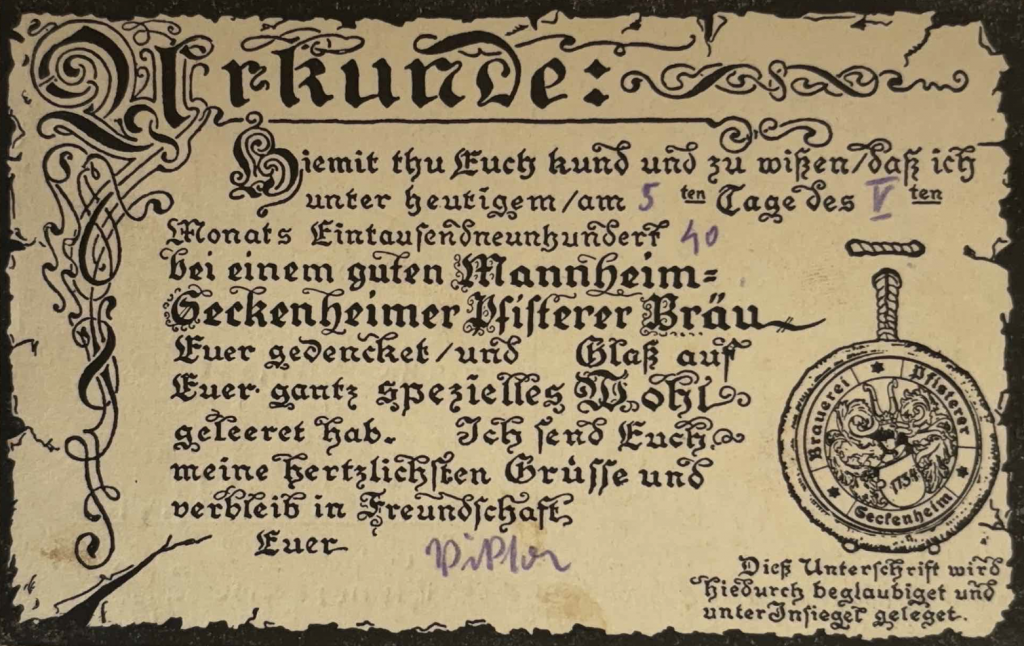 Urkunde:
Hiemit thu Euch kund und zu wißen/daß ich
unter heutigem/am 5 ten Tage des V ten
Monats Eintausendneunhundert 40
bei einem guten Mannheim=
Seckenheimer Pfisterer Bräu
Euer gedencket/und Glaß auf
Euer gantz spezielles Wohl
geleeret hab. Ich send Euch
meine hertzlichsten Grüsse und
verbleib in Freundschaft
Euer Viktor
Brauerei Pfisterer
1734
Seckenheim
Dieß Unterschrift wird
hiedurch beglaubiget und
unter Insiegel geleget.